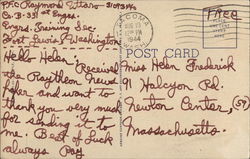 Pfc Raymond
Co. B-33
Engrs. Training Sec.
Fort Lewis, Washington
TACOMA
1944
FREE
POST CARD
Hello Helen: Received
the Raytheon News
and want to
thank you very much
for sending it to
me. Best of luck
always Ray
Miss Helen Frederick
91 Halcyon Rd.
Newton Center, (59)
Massachusetts.